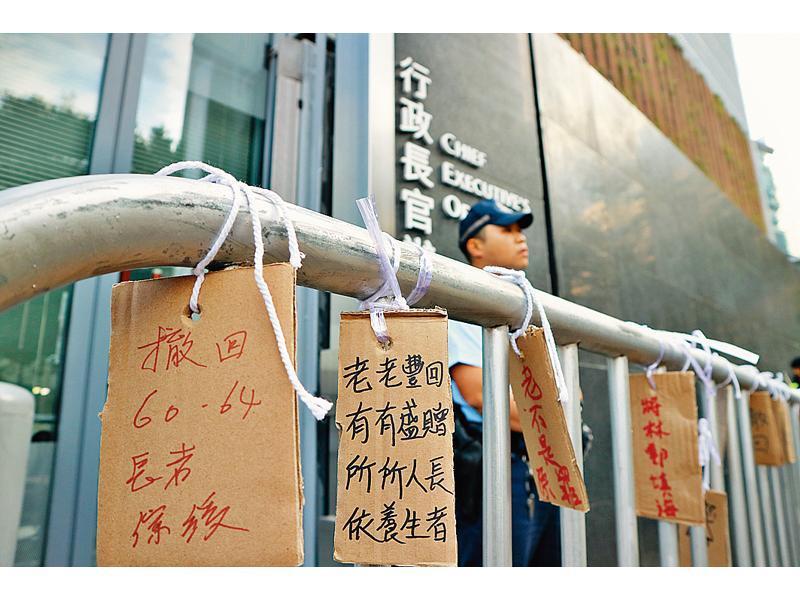 行政長官
CHIEF
EXECUTIVE'S
撤回
60-64
長者
綜援
回贈長者
豐盛人生
老有所養
老有所依
老不是
原罪
將林鄭填海